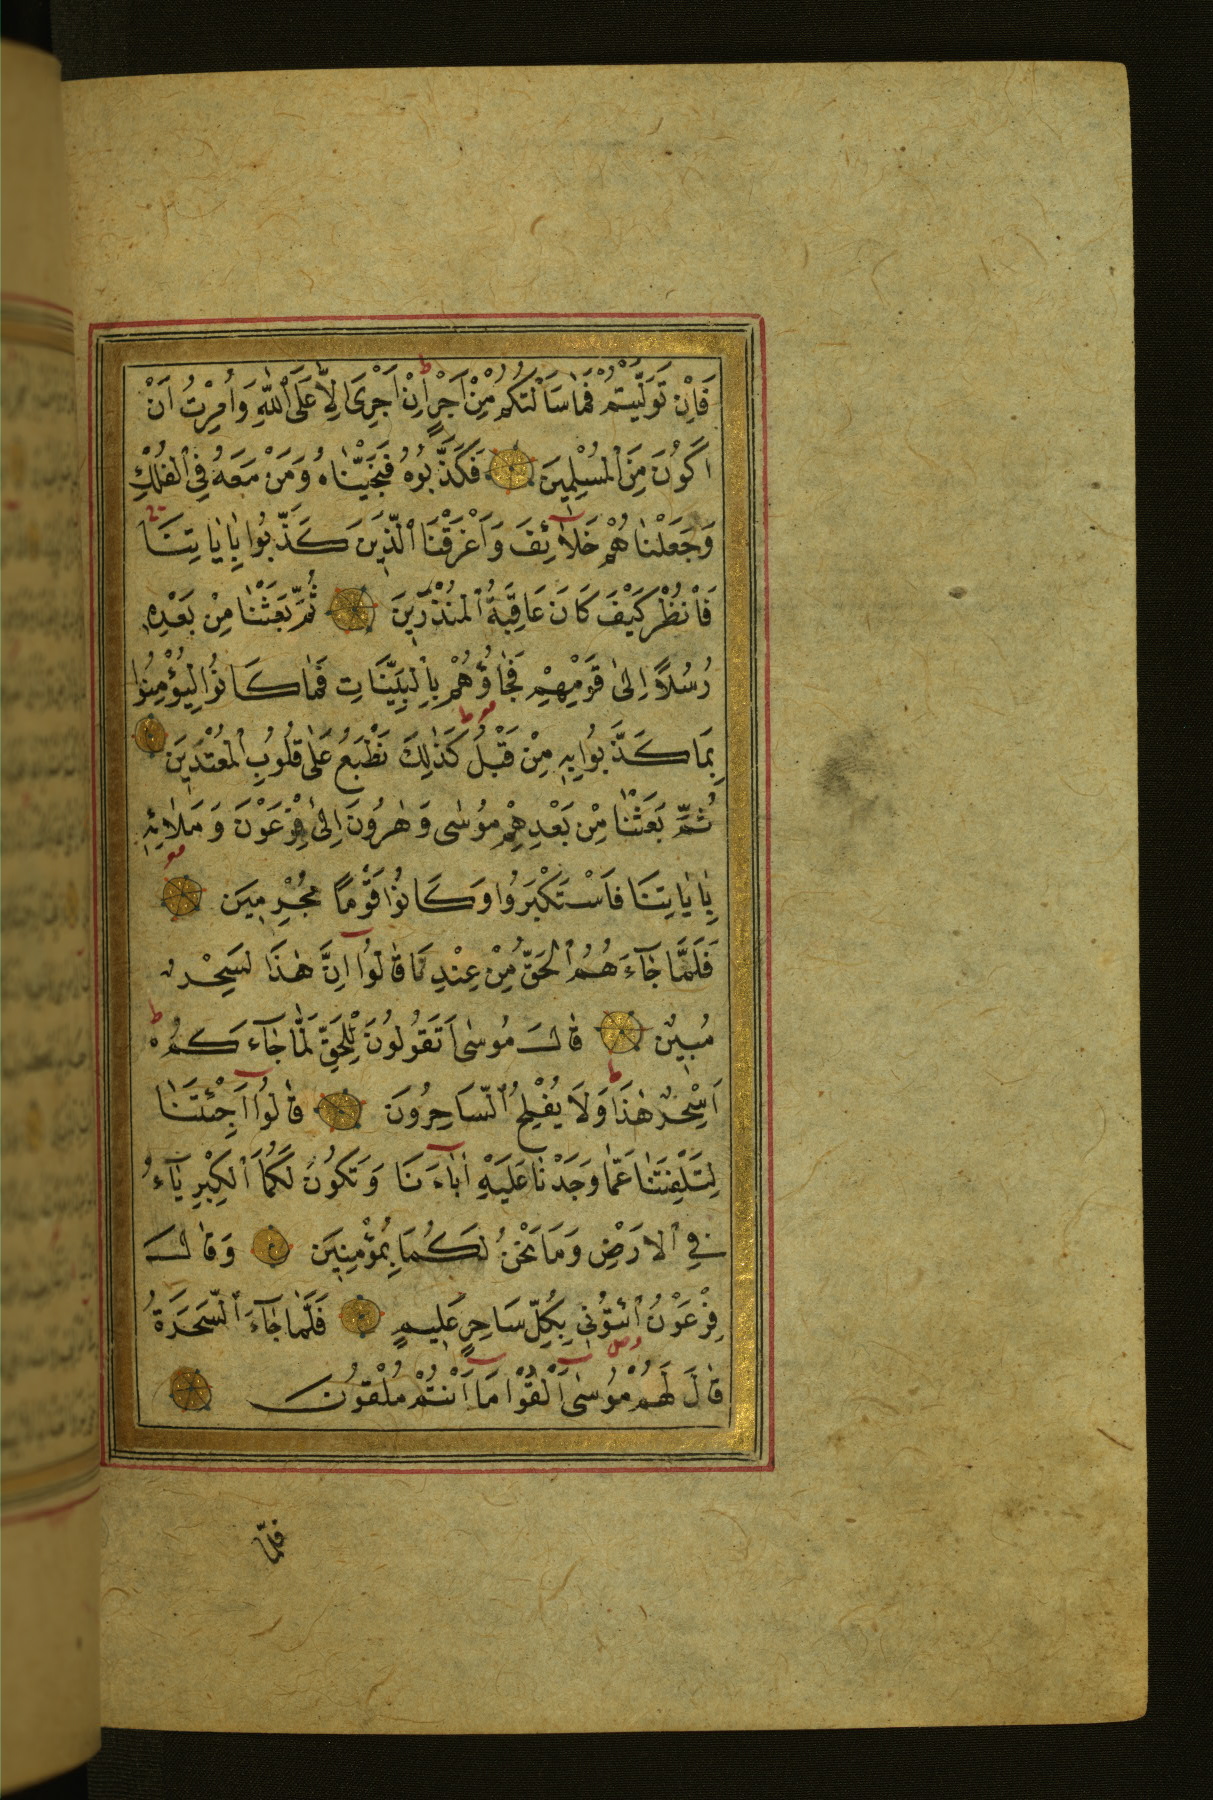 فَاِنْ تَوَلَّيْتُمْ فَمَا سَاَلْتُكُمْ مِنْ اَجْرٍ ط اِنْ اَجْرِىَ اِلَّا عَلَى ٱللّٰهِ وَاُمِرْتُ اَنْ
اَكُونَ مِنَ ٱلْمُسْلِمِينَ فَكَذَّبُوهُ فَنَجَّيْنَاهُ وَمَنْ مَعَهُ فِى ٱلْفُلْكِ
وَجَعَلْنَاهُمْ خَلَآئِفَ وَاَغْرَقْنَا ٱلَّذِينَ كَذَّبُوا بِاٰيَاتِنَا
فَانْظُرْ كَيْفَ كَانَ عَاقِبَةُ ٱلْمُنْذَرِينَ ثُمَّ بَعَثْنَا مِنْ بَعْدِهِ
رُسُلًا اِلٰى قَوْمِهِمْ فَجَاؤُهُمْ بِالْبَيِّنَاتِ فَمَا كَانُوا لِيُؤْمِنُوا
بِمَا كَذَّبُوا بِهِ مِنْ قَبْلُ ط كَذٰلِكَ نَطْبَعُ عَلٰى قُلُوبِ ٱلْمُعْتَدِينَ
ثُمَّ بَعَثْنَا مِنْ بَعْدِهِمْ مُوسٰى وَهٰرُونَ اِلٰى فِرْعَوْنَ وَمَلَائِهِ
بِاٰيَاتِنَا فَاسْتَكْبَرُوا وَكَانُوا قَوْمًا مُجْرِمِينَ
فَلَمَّا جَآءَهُمُ ٱلْحَقُّ مِنْ عِنْدِنَا قَالُوٓا اِنَّ هٰذَا لَسِحْرٌ
مُبِينٌ قَالَ مُوسٰى اَتَقُولُونَ لِلْحَقِّ لَمَّا جَآءَكُمْ ط
اَسِحْرٌ هٰذَا ط وَلَا يُفْلِحُ ٱلسَّاحِرُونَ قَالُوٓا اَجِئْتَنَا
لِتَلْفِتَنَا عَمَّا وَجَدْنَا عَلَيْهِ اٰبَآءَنَا وَتَكُونَ لَكُمَا ٱلْكِبْرِيَآءُ
فِى ٱلْاَرْضِ وَمَا نَحْنُ لَكُمَا بِمُؤْمِنِينَ وَقَالَ
فِرْعَوْنُ ٱئْتُونِى بِكُلِّ سَاحِرٍ عَلِيمٍ فَلَمَّا جَآءَ ٱلسَّحَرَةُ
قَالَ لَهُمْ مُوسٰىٓ اَلْقُوا مَآ اَنْتُمْ مُلْقُونَ
فلمّا